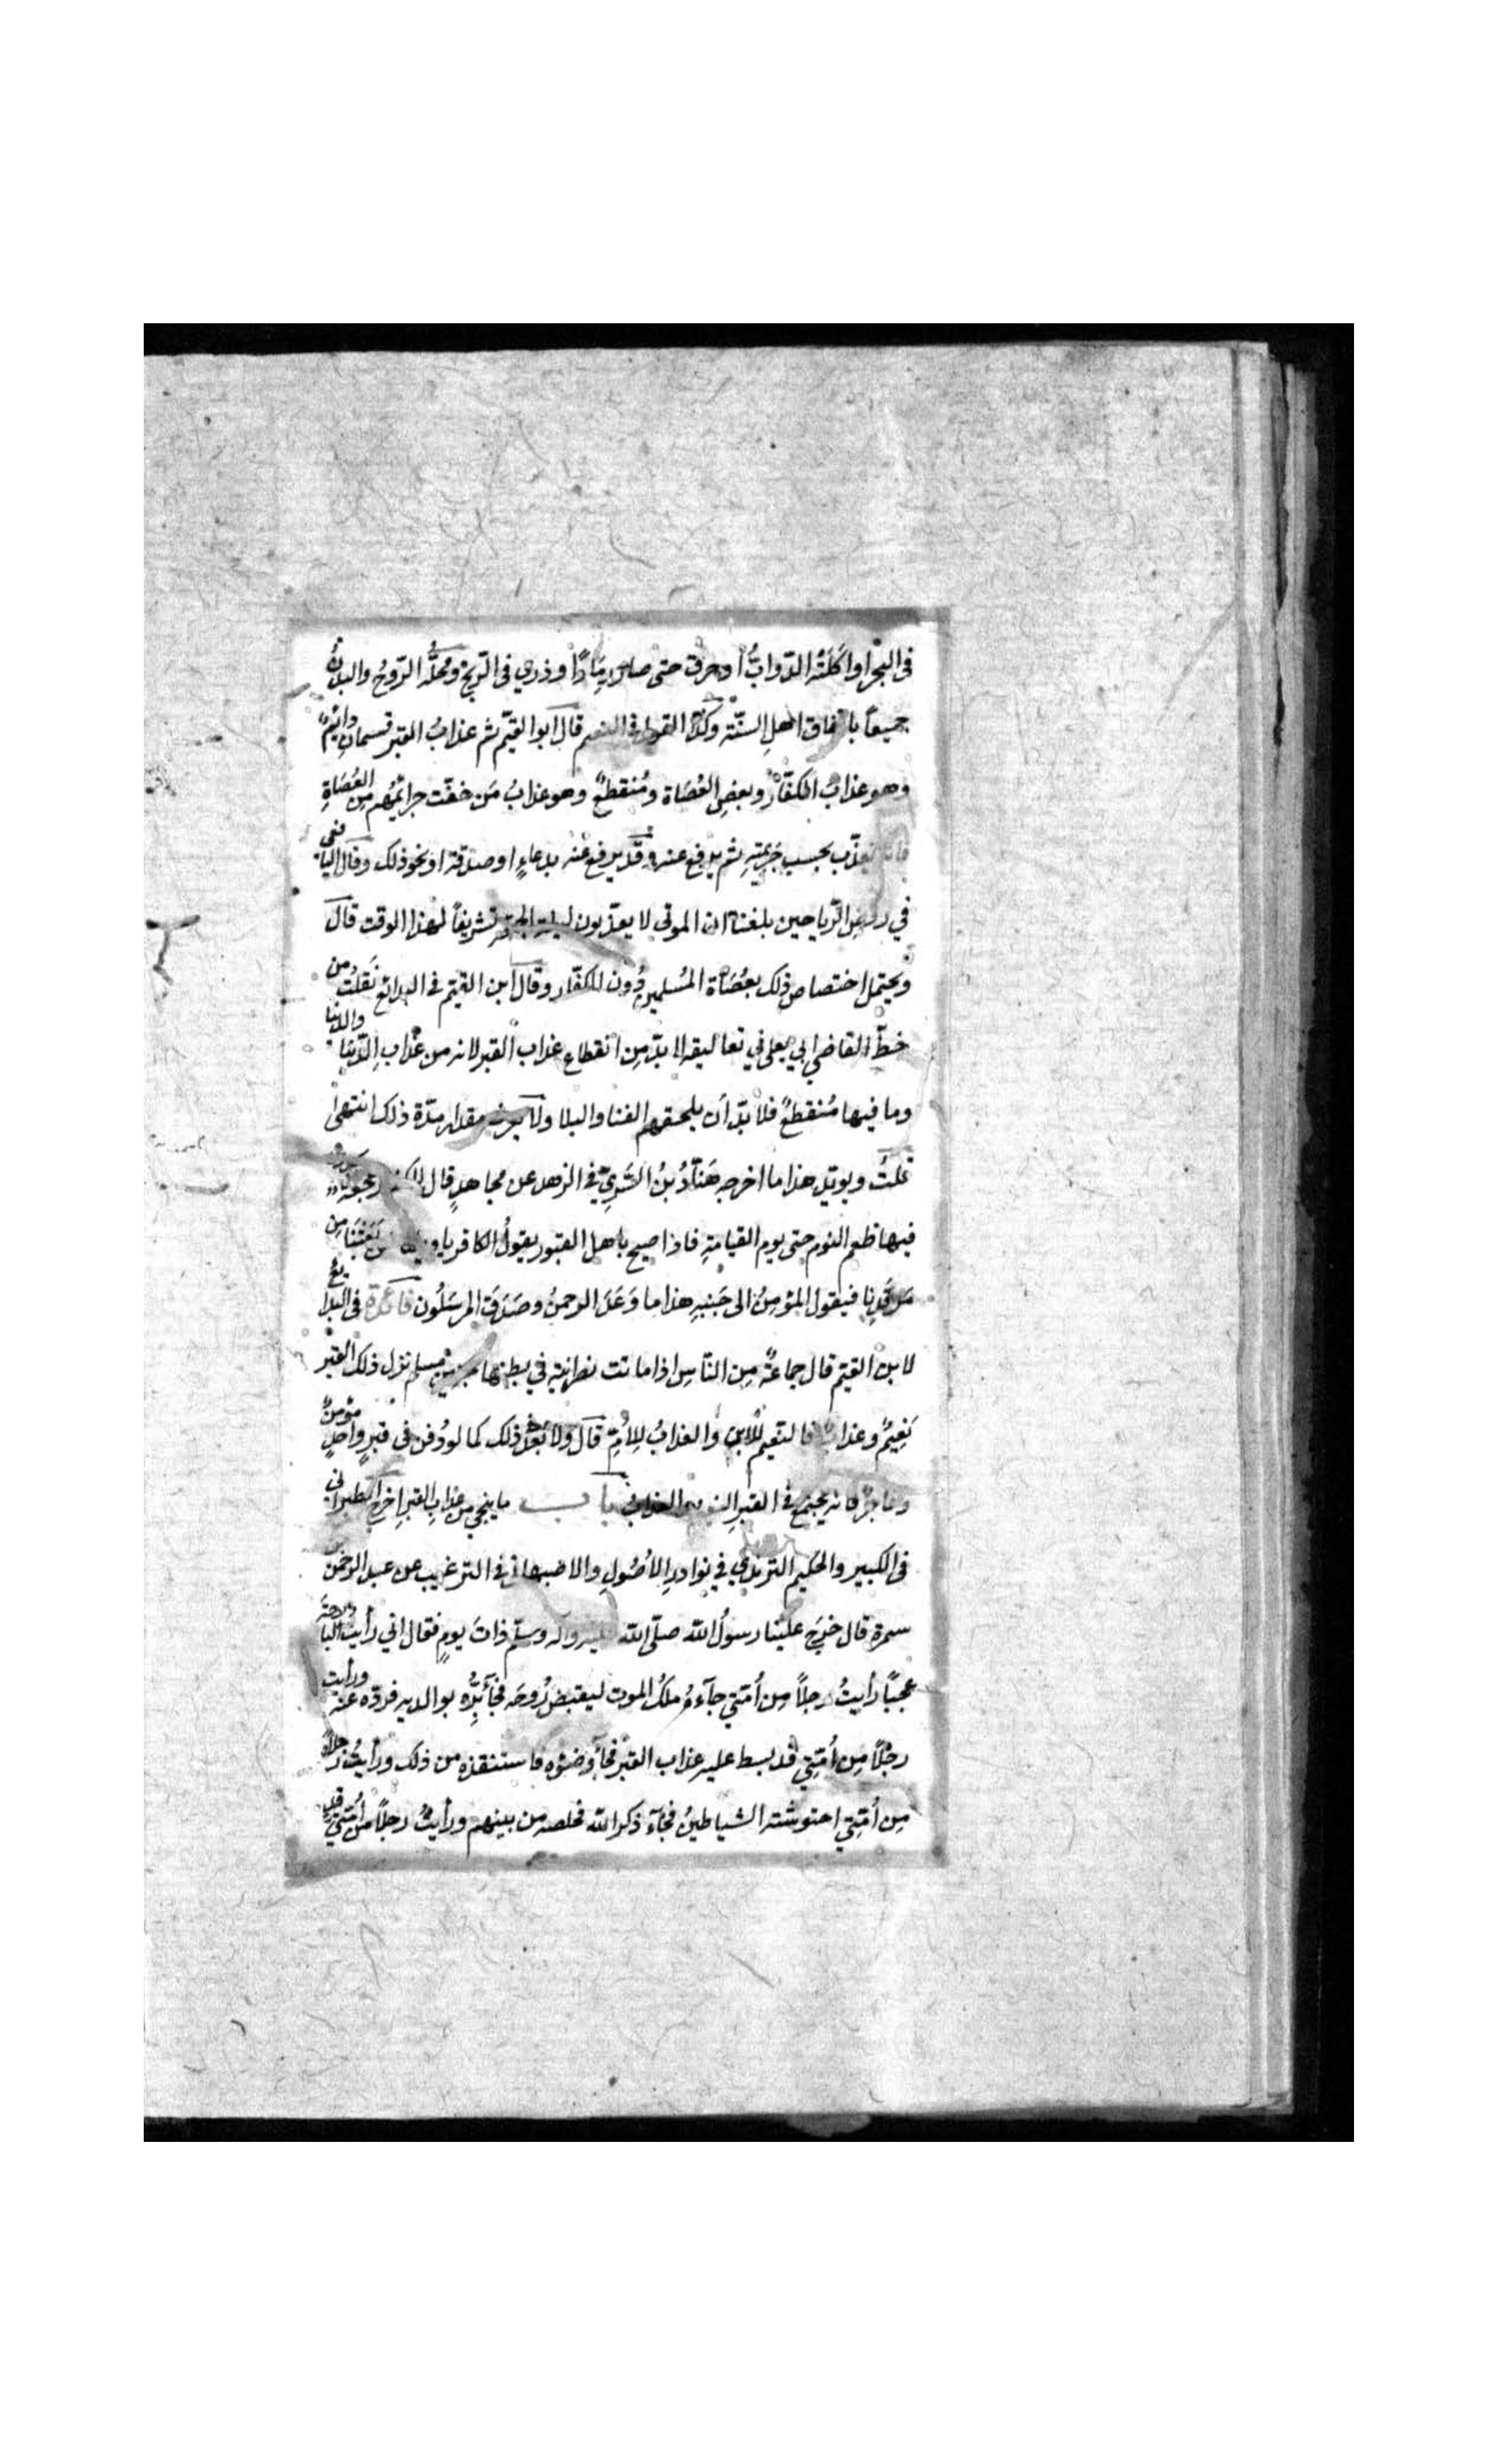 في البحر او اكلته الدّوابُّ او حرق حتى صار رمَادًا و ذري في الرّيح ومحلُّه الرّوحُ والبدنُ
جميعاً باتفاق اهلِ السنّة وكذا القول في النعيم قال ابوالقيّم ثم عذابُ القبر قسمان دائمٌ
وهو عذابُ الكفّار وبعضِ العُصَاة ومُنقطعٌ وهو عذابُ مَن خفّت جرائمُهم مِن العُصَاةِ
يعذّب بحسب جَريمتِه ثم يرفع عنه وقد يرفع عنه بدعاءٍ او صدقة او نحو ذلك وقال اليافعى
في روضِ الرّياحين بلغنا ان الموتى لا يعذّبون ليلة الجمعة تشريفاً لهذا الوقت قال
ويحتمل اختصاص ذلك بعُصَاة المُسلمين دُون الكفّار وقال ابن القيّم في البدائع نَقلتُ من
خطِّ القاضي ابي يعلى في تعاليقه لا بدّ مِن انقطاع عذاب القبر لانه من عذابِ الدّنيَا والدنيا
وما فيها مُنقطعٌ فلا بدّ أن يلحقهم الفنا والبلا ولا يعرف مقدار مدّة ذلك انتهى
قلتُ ويويّد هذا ما اخرجه هَنّادُ بنُ السَّرِيّ في الزهد عن مجاهدٍ قال للكفار هجعة يجدون
فيها طعم النوم حتى يوم القيامةِ فاذا صيح باهل القبور يقولُ الكافر يا ويلنا من بَعَثَنَا مِن
مَرقَدِنا فيقول المؤمِنُ الى جَنبِه هذا ما وَعَدَ الرحمنُ وصَدَقَ المرسَلُون فائدة في البدايع
لابن القيّم قال جماعةٌ مِن النّاسِ اذا ماتت نصرانية في بطنها جنين مسلم نزل ذلك القبر
نَعِيمٌ وعذابٌ فالنعيم للابن والعذابُ للاُمِّ قال ولا بُعْدَ ذلك كما لو دُفن في قبرٍ واحدٍ مؤمنٌ
وفاجرٌ فانه يجتمع في القبرِ النعيم والعذاب باب ما ينجي من عذابِ القبرِ اخرج الطبراني
في الكبير والحكيم الترمذي في نوادرِ الأصُولِ والاصبهاني في الترغيب عن عبد الرحمن
سمرة قال خرَج علينا رسولُ الله صلّى الله عليه وآله وسلّم ذاتَ يومٍ فقال اني رأيت البارحةَ
عجبًا رأيتُ رجلاً مِن أُمّتي جآءهُ ملكُ الموت ليقبض رُوحَه فجآء بِرُّه بوالديه فردّه عنه ورأيت
رجُلاً مِن أُمّتِي قد بسط عليه عذاب القبر فجآء وضؤه فاستنقذه من ذلك ورأيتُ رجلاً
مِن أُمّتِي احتوشته الشياطينُ فجآء ذكر الله فخلصه من بينهم ورأيتُ رجلاً من أُمّتِي قد